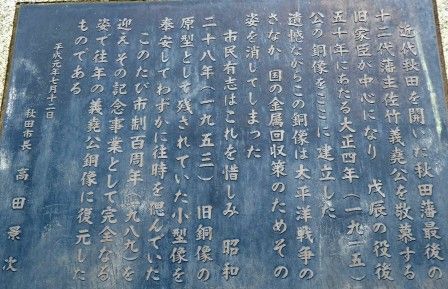 近代秋田を開いた秋田藩最後の
十二代藩主佐竹義堯公を敬慕する
旧家臣が中心になり　戊辰の役後
五十年にあたる大正四年（一九一五）
公の銅像をここに建立した
遺憾ながらこの銅像は太平洋戦争の
さなか　国の金属回収策のためその
姿を消してしまった
市民有志はこれを惜しみ　昭和
二十八年（一九五三）　旧銅像の
原型として残されていた小型像を
奉安してわずかに往時を偲んでいた
このたび市制百周年（一九八九）を
迎えその記念事業として完全なる
姿で往年の義堯公銅像に復元した
ものである
平成元年七月十二日
秋田市長　高田景次